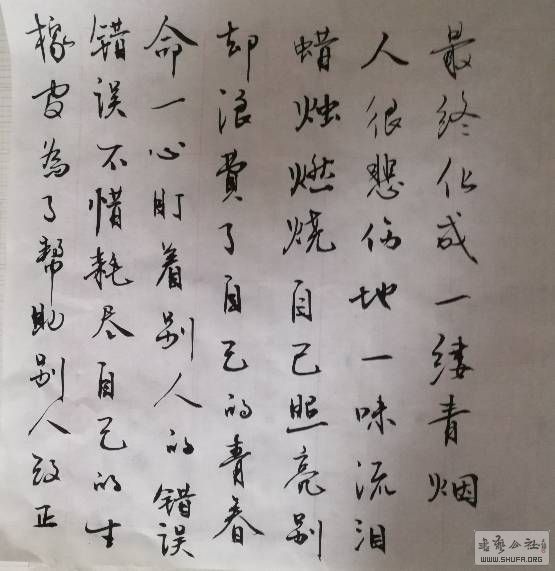 橡皮為了帮助别人改正
错误不惜耗尽自己的生
命一心盯着别人的错误
却浪費了自己的青春
蜡烛燃烧自己照亮别
人很悲伤地一味流泪
最终化成一缕青烟
WWW.SHUFA.ORG